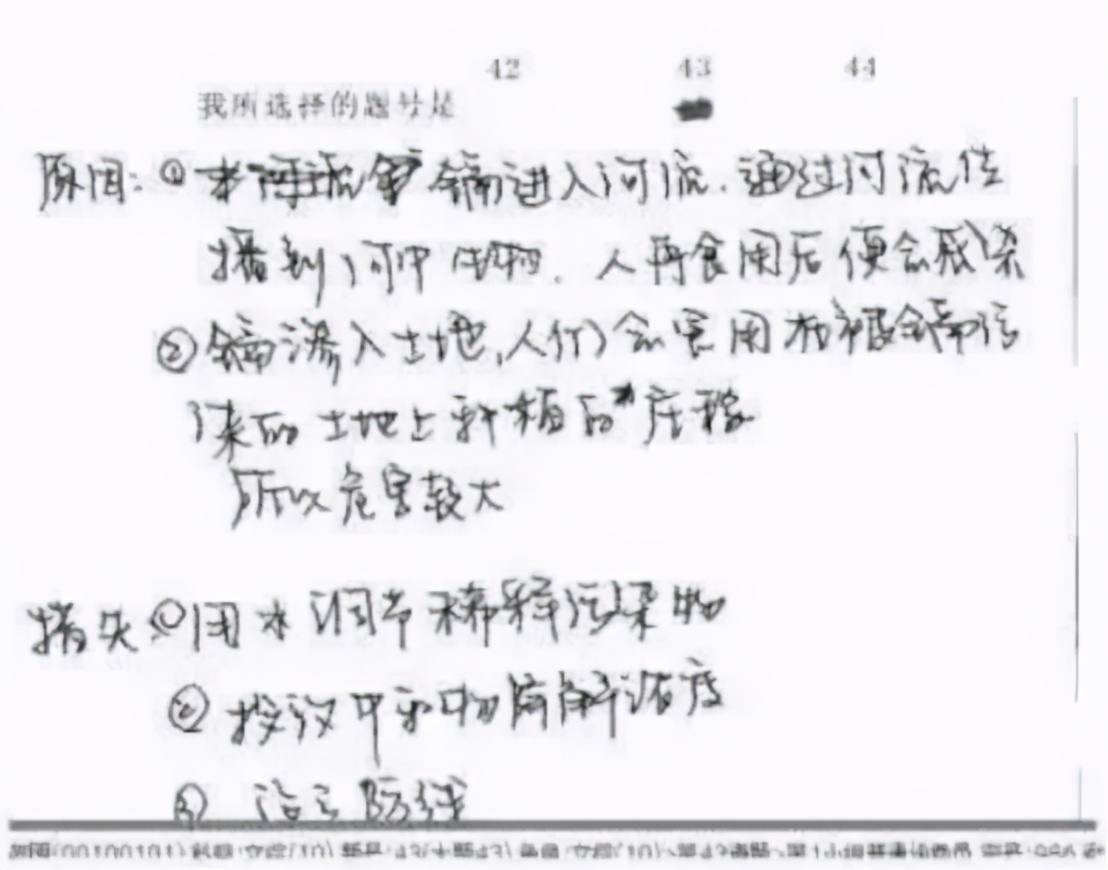 42 43 44
我所选择的题号是
原因:① 镉进入河流.通过河流传
播到河中生物.人再食用后便会感染
②镉渗入土地,人们会食用在被镉污
染的土地上种植的庄稼
所以危害较大
措失①闭水调节稀释污染物
②投放中和物降解浓度
③设立防线